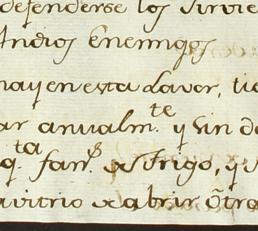 defenderse los sirvie
Indios Enemigos
hay en esta Lavor, tie
ar anualm.te y sin de
q.ta fan.s de trigo, y s
avitrio de abrir otra